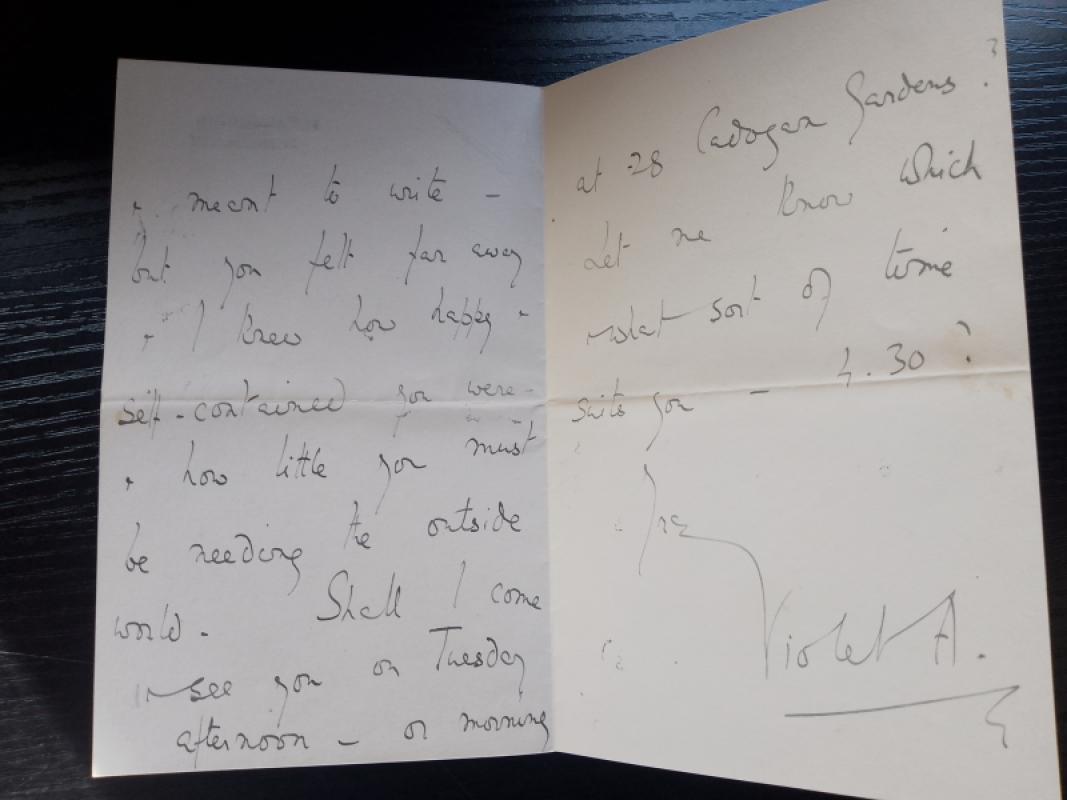 + meant to write -
but you felt far away
+ I knew how happy +
self-contained you were -
+ how little you must
be needing the outside
world. Shall I come
see you on Tuesday
afternoon - or morning
at 28 Cadogan Gardens?
Let me know which
what sort of time
suits you - 4.30?
Yrs
Violet A.